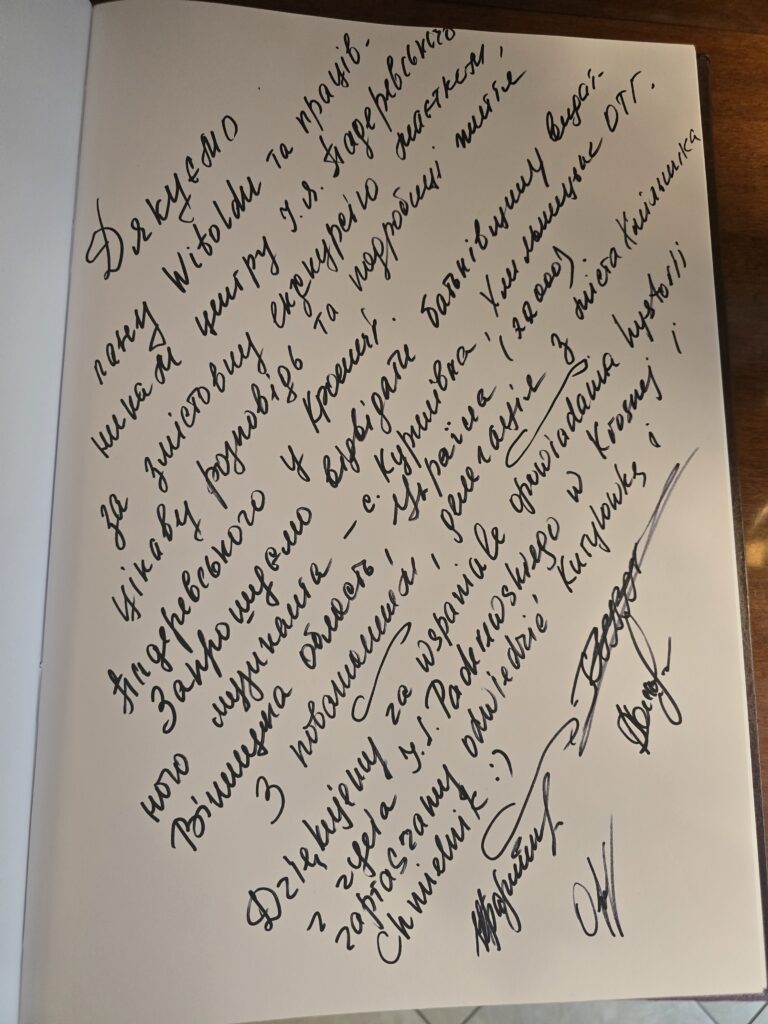 Дякуємо
пану Witoldu та праців-
никам центру І. Я. Падеревського
за змістовну екскурсію маєтком,
цікаву розповідь та подробиці життя
Падеревського у Кросней.
Запрошуємо відвідати батьківщину видат-
ного музиканта – с. Курилівка, Хмільницьке ОТГ.
Вінницька область, Україна (22000)
З повагою, делегація з міста Хмільника
Dziękujemy za wspaniałe opowiadania hystorii
z życia I. J. Paderewskiego w Krosnej i
zapraszamy odwiedzić Kuryłowkę i
Chmielnik :)